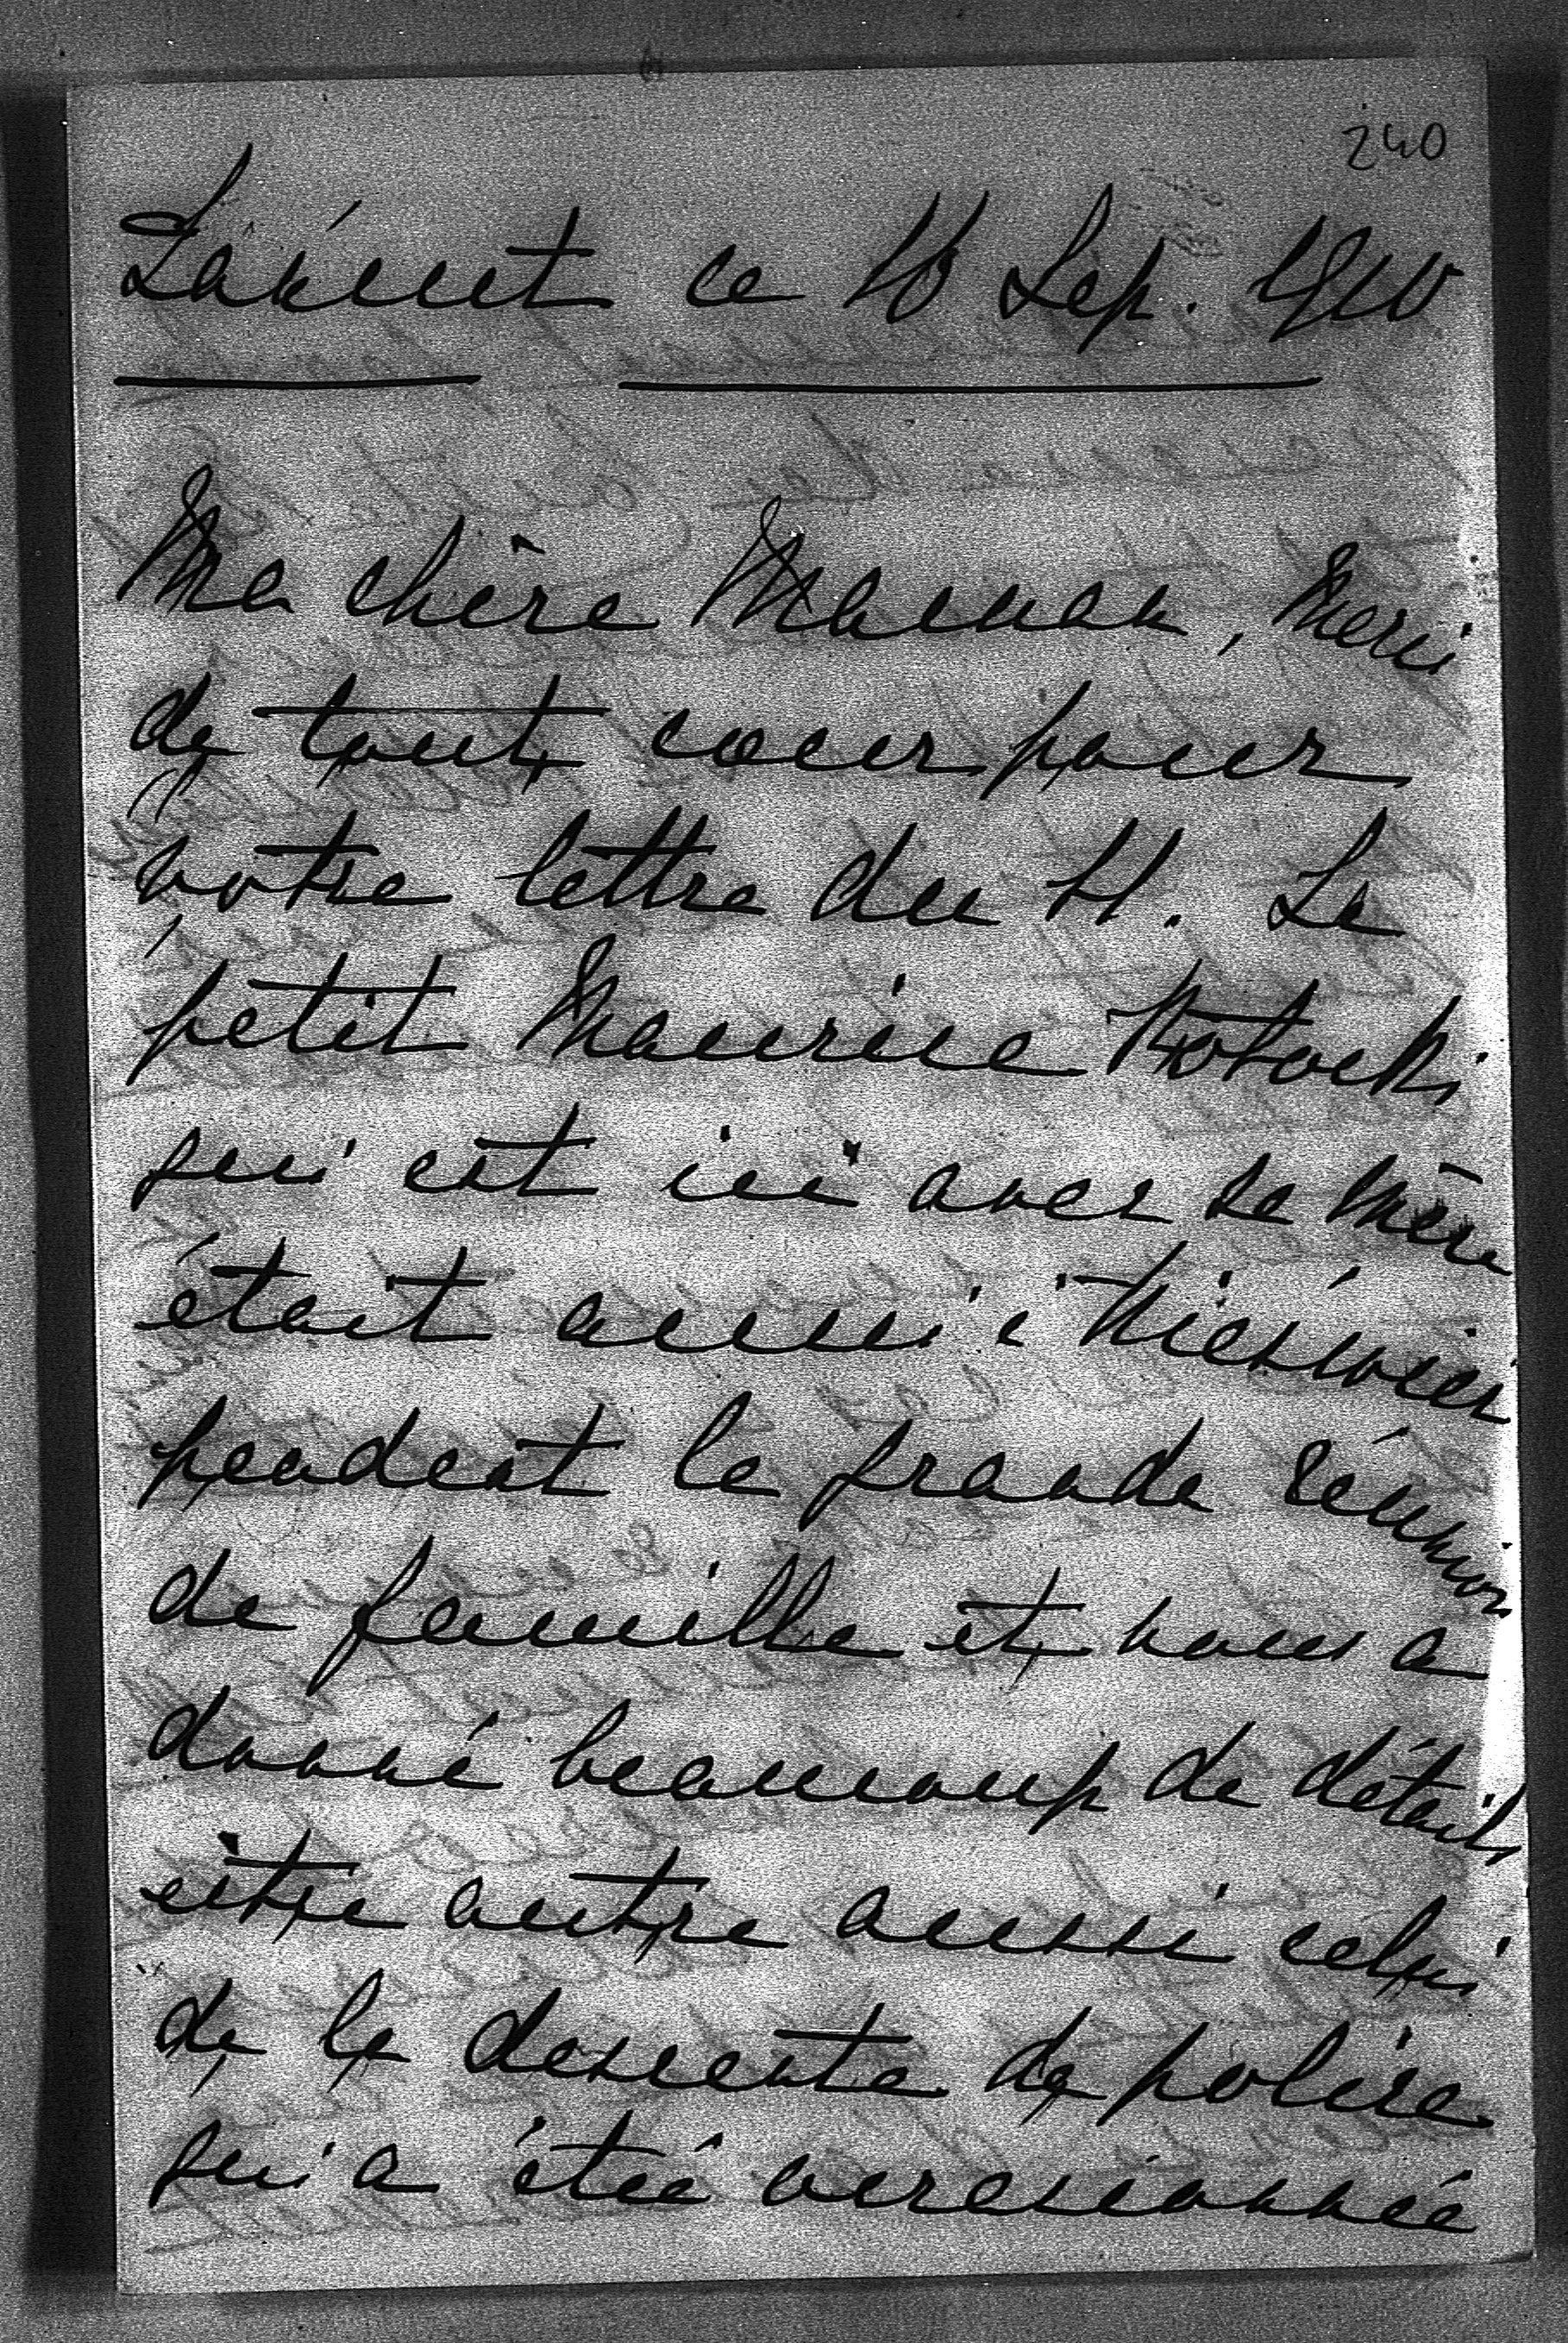 240
Łańcut ce 18 Sep. 1910
Ma chère Maman, Merci
de tout coeur pour
votre lettre du 11. Le
petit Maurice Potocki
qui est ici avec sa mère
était aussi à Nieśwież
pendant la grande réunion
de famille et nous a
donné beaucoup de détails
entre autre aussi celui
de la descente de police
qui a étée